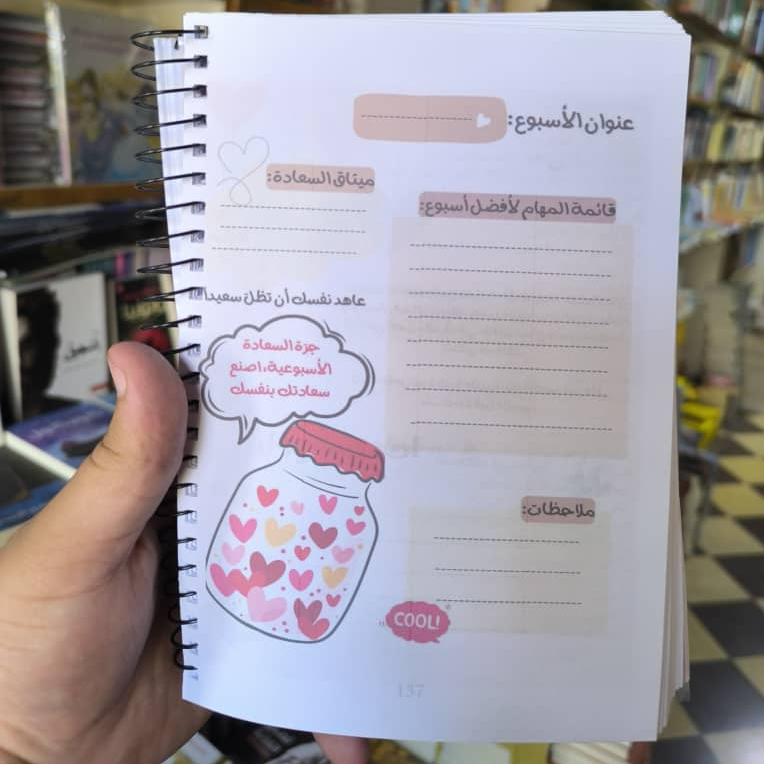 عنوان الأسبوع:
ميثاق السعادة:
قائمة المهام لأفضل أسبوع:
عاهد نفسك أن تظل سعيدا
جرة السعادة
الأسبوعية، اصنع
سعادتك بنفسك
ملاحظات:
COOL!
137